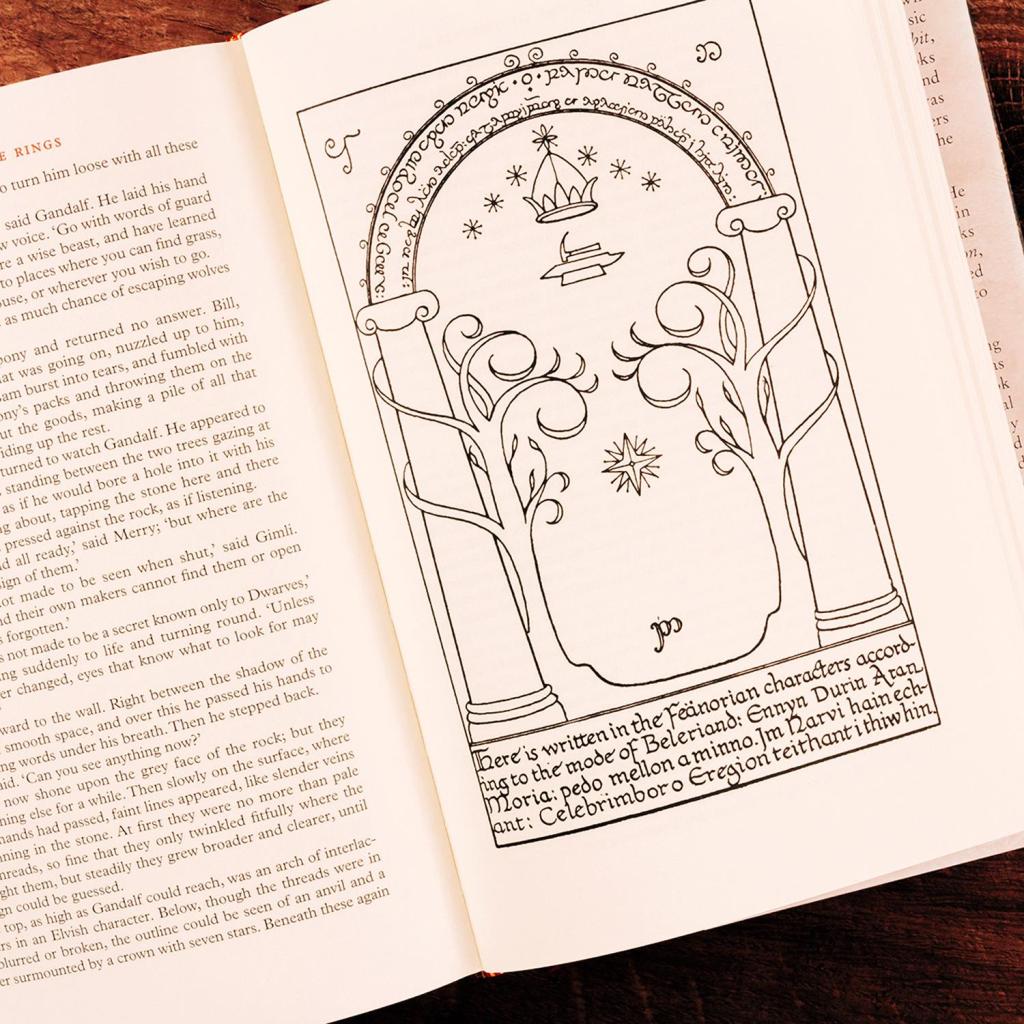 E RINGS
o turn him loose with all these
said Gandalf. He laid his hand
w voice. ‘Go with words of guard
re a wise beast, and have learned
to places where you can find grass,
ouse, or wherever you wish to go.
as much chance of escaping wolves
pony and returned no answer. Bill,
hat was going on, nuzzled up to him,
Sam burst into tears, and fumbled with
ony’s packs and throwing them on the
ut the goods, making a pile of all that
iding up the rest.
turned to watch Gandalf. He appeared to
standing between the two trees gazing at
as if he would bore a hole into it with his
ng about, tapping the stone here and there
pressed against the rock, as if listening.
d all ready,’ said Merry; ‘but where are the
sign of them.’
ot made to be seen when shut,’ said Gimli.
nd their own makers cannot find them or open
s forgotten.’
s not made to be a secret known only to Dwarves,’
ng suddenly to life and turning round. ‘Unless
er changed, eyes that know what to look for may
ward to the wall. Right between the shadow of the
smooth space, and over this he passed his hands to
ng words under his breath. Then he stepped back.
aid. ‘Can you see anything now?’
now shone upon the grey face of the rock; but they
hing else for a while. Then slowly on the surface, where
hands had passed, faint lines appeared, like slender veins
nning in the stone. At first they were no more than pale
hreads, so fine that they only twinkled fitfully where the
ght them, but steadily they grew broader and clearer, until
gn could be guessed.
top, as high as Gandalf could reach, was an arch of interlac-
rs in an Elvish character. Below, though the threads were in
blurred or broken, the outline could be seen of an anvil and a
er surmounted by a crown with seven stars. Beneath these again
Here is written in the Fëanorian characters accord-
ing to the mode of Beleriand: Ennyn Durin Aran
Moria: pedo mellon a minno. Im Narvi hain ech-
ant: Celebrimbor o Eregion teithant i thiw hin.